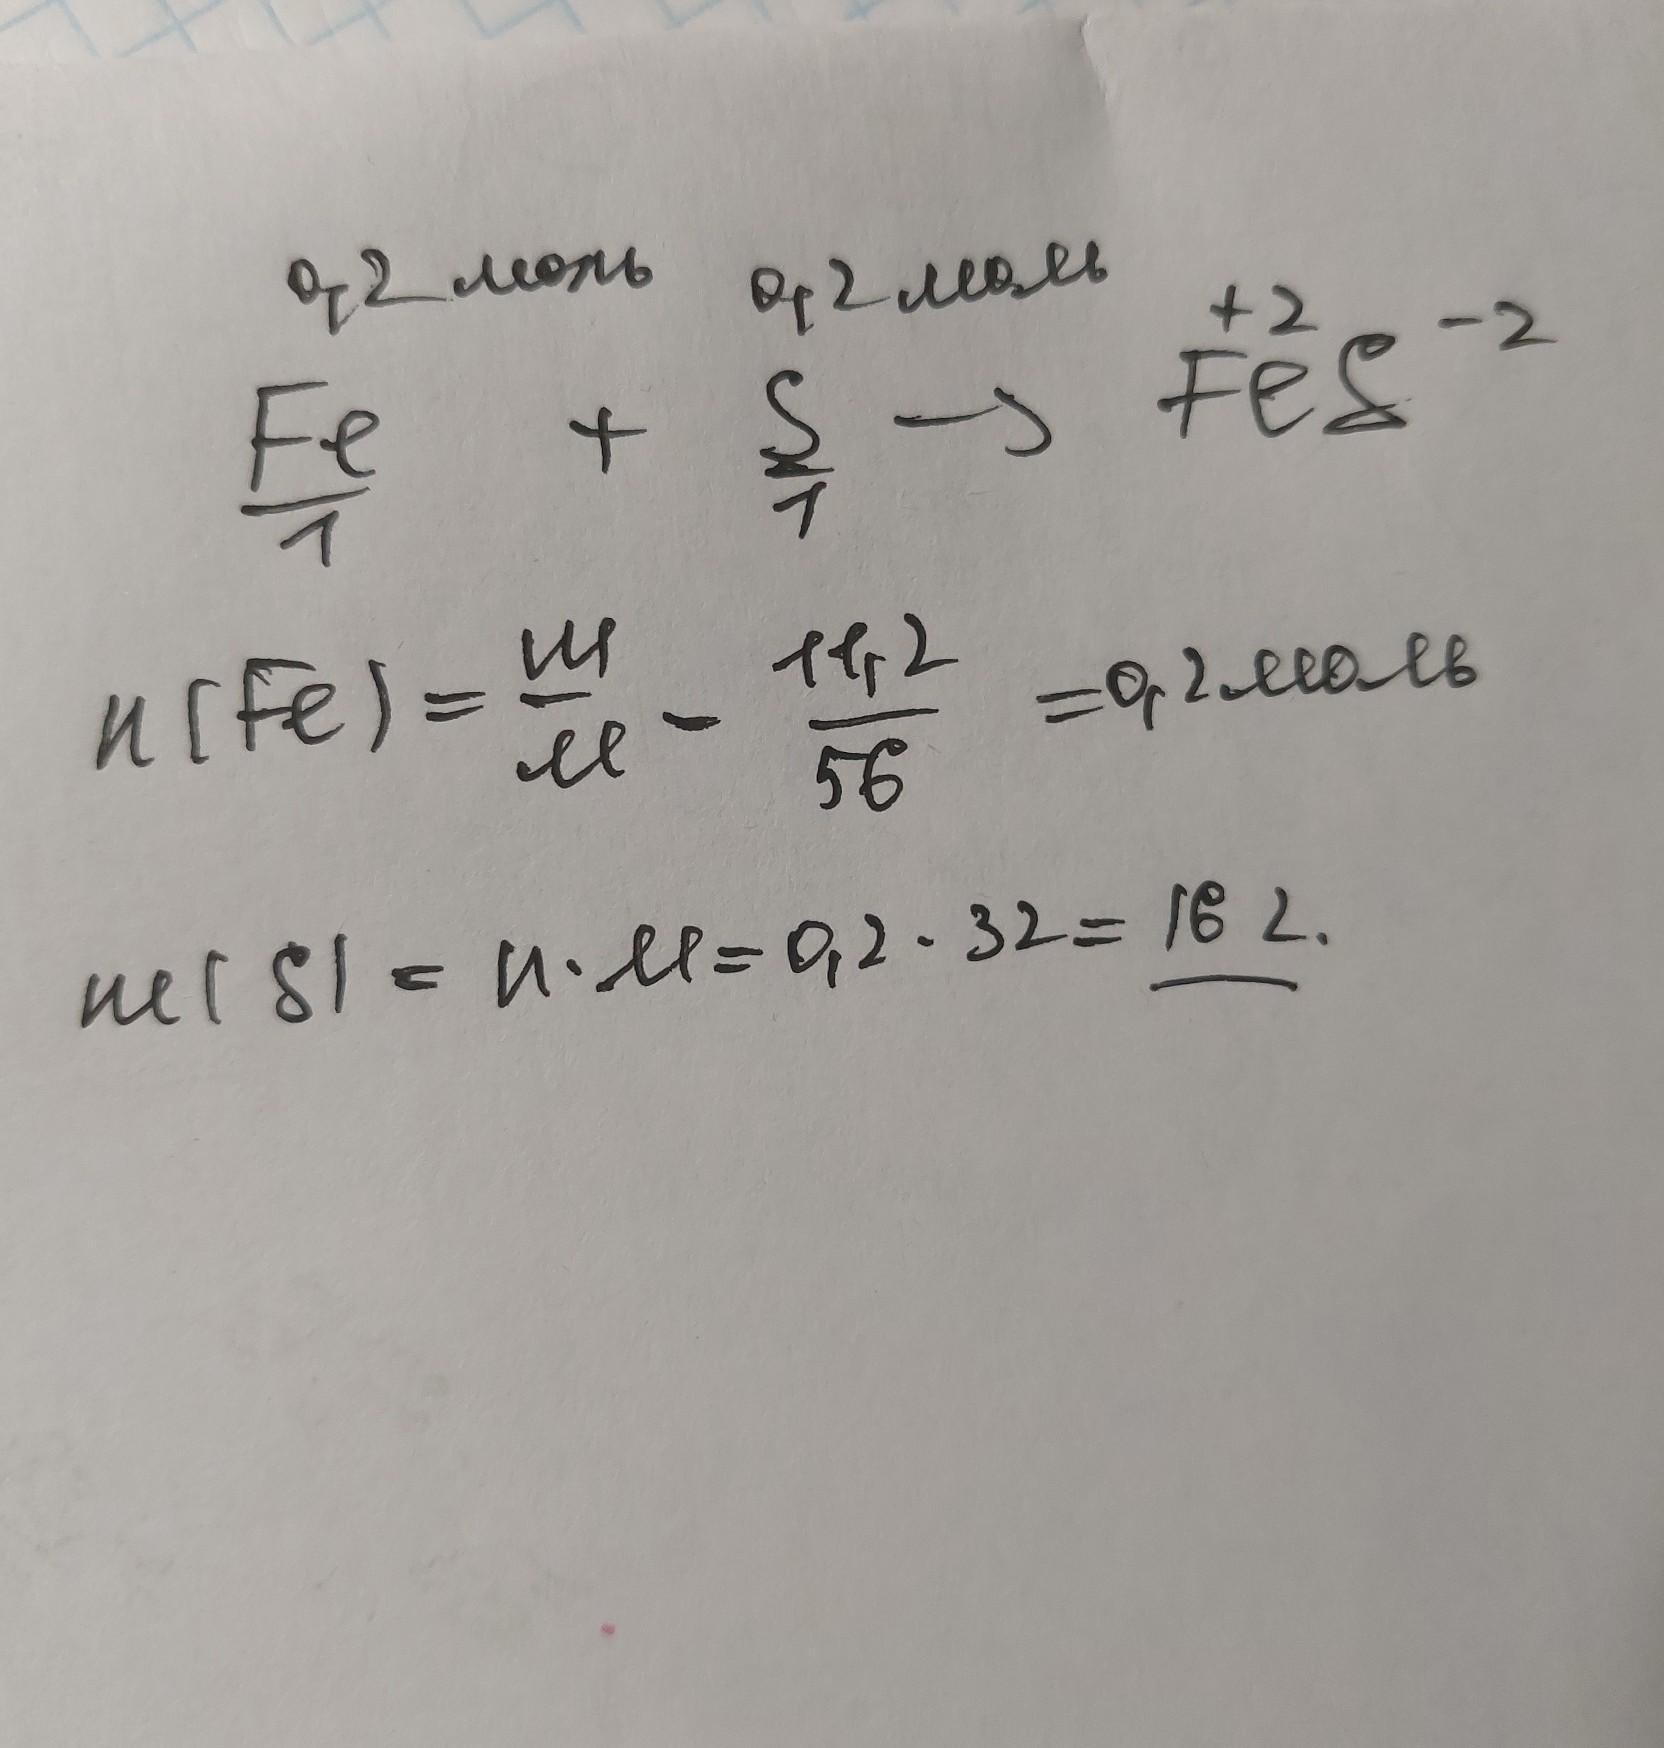 0,2 моль 0,2 моль
Fe + S → FeS
+2 -2
1 1
n(Fe) = m/M - 11,2/56 = 0,2 моль
m(S) = n · M = 0,2 · 32 = 16 г.